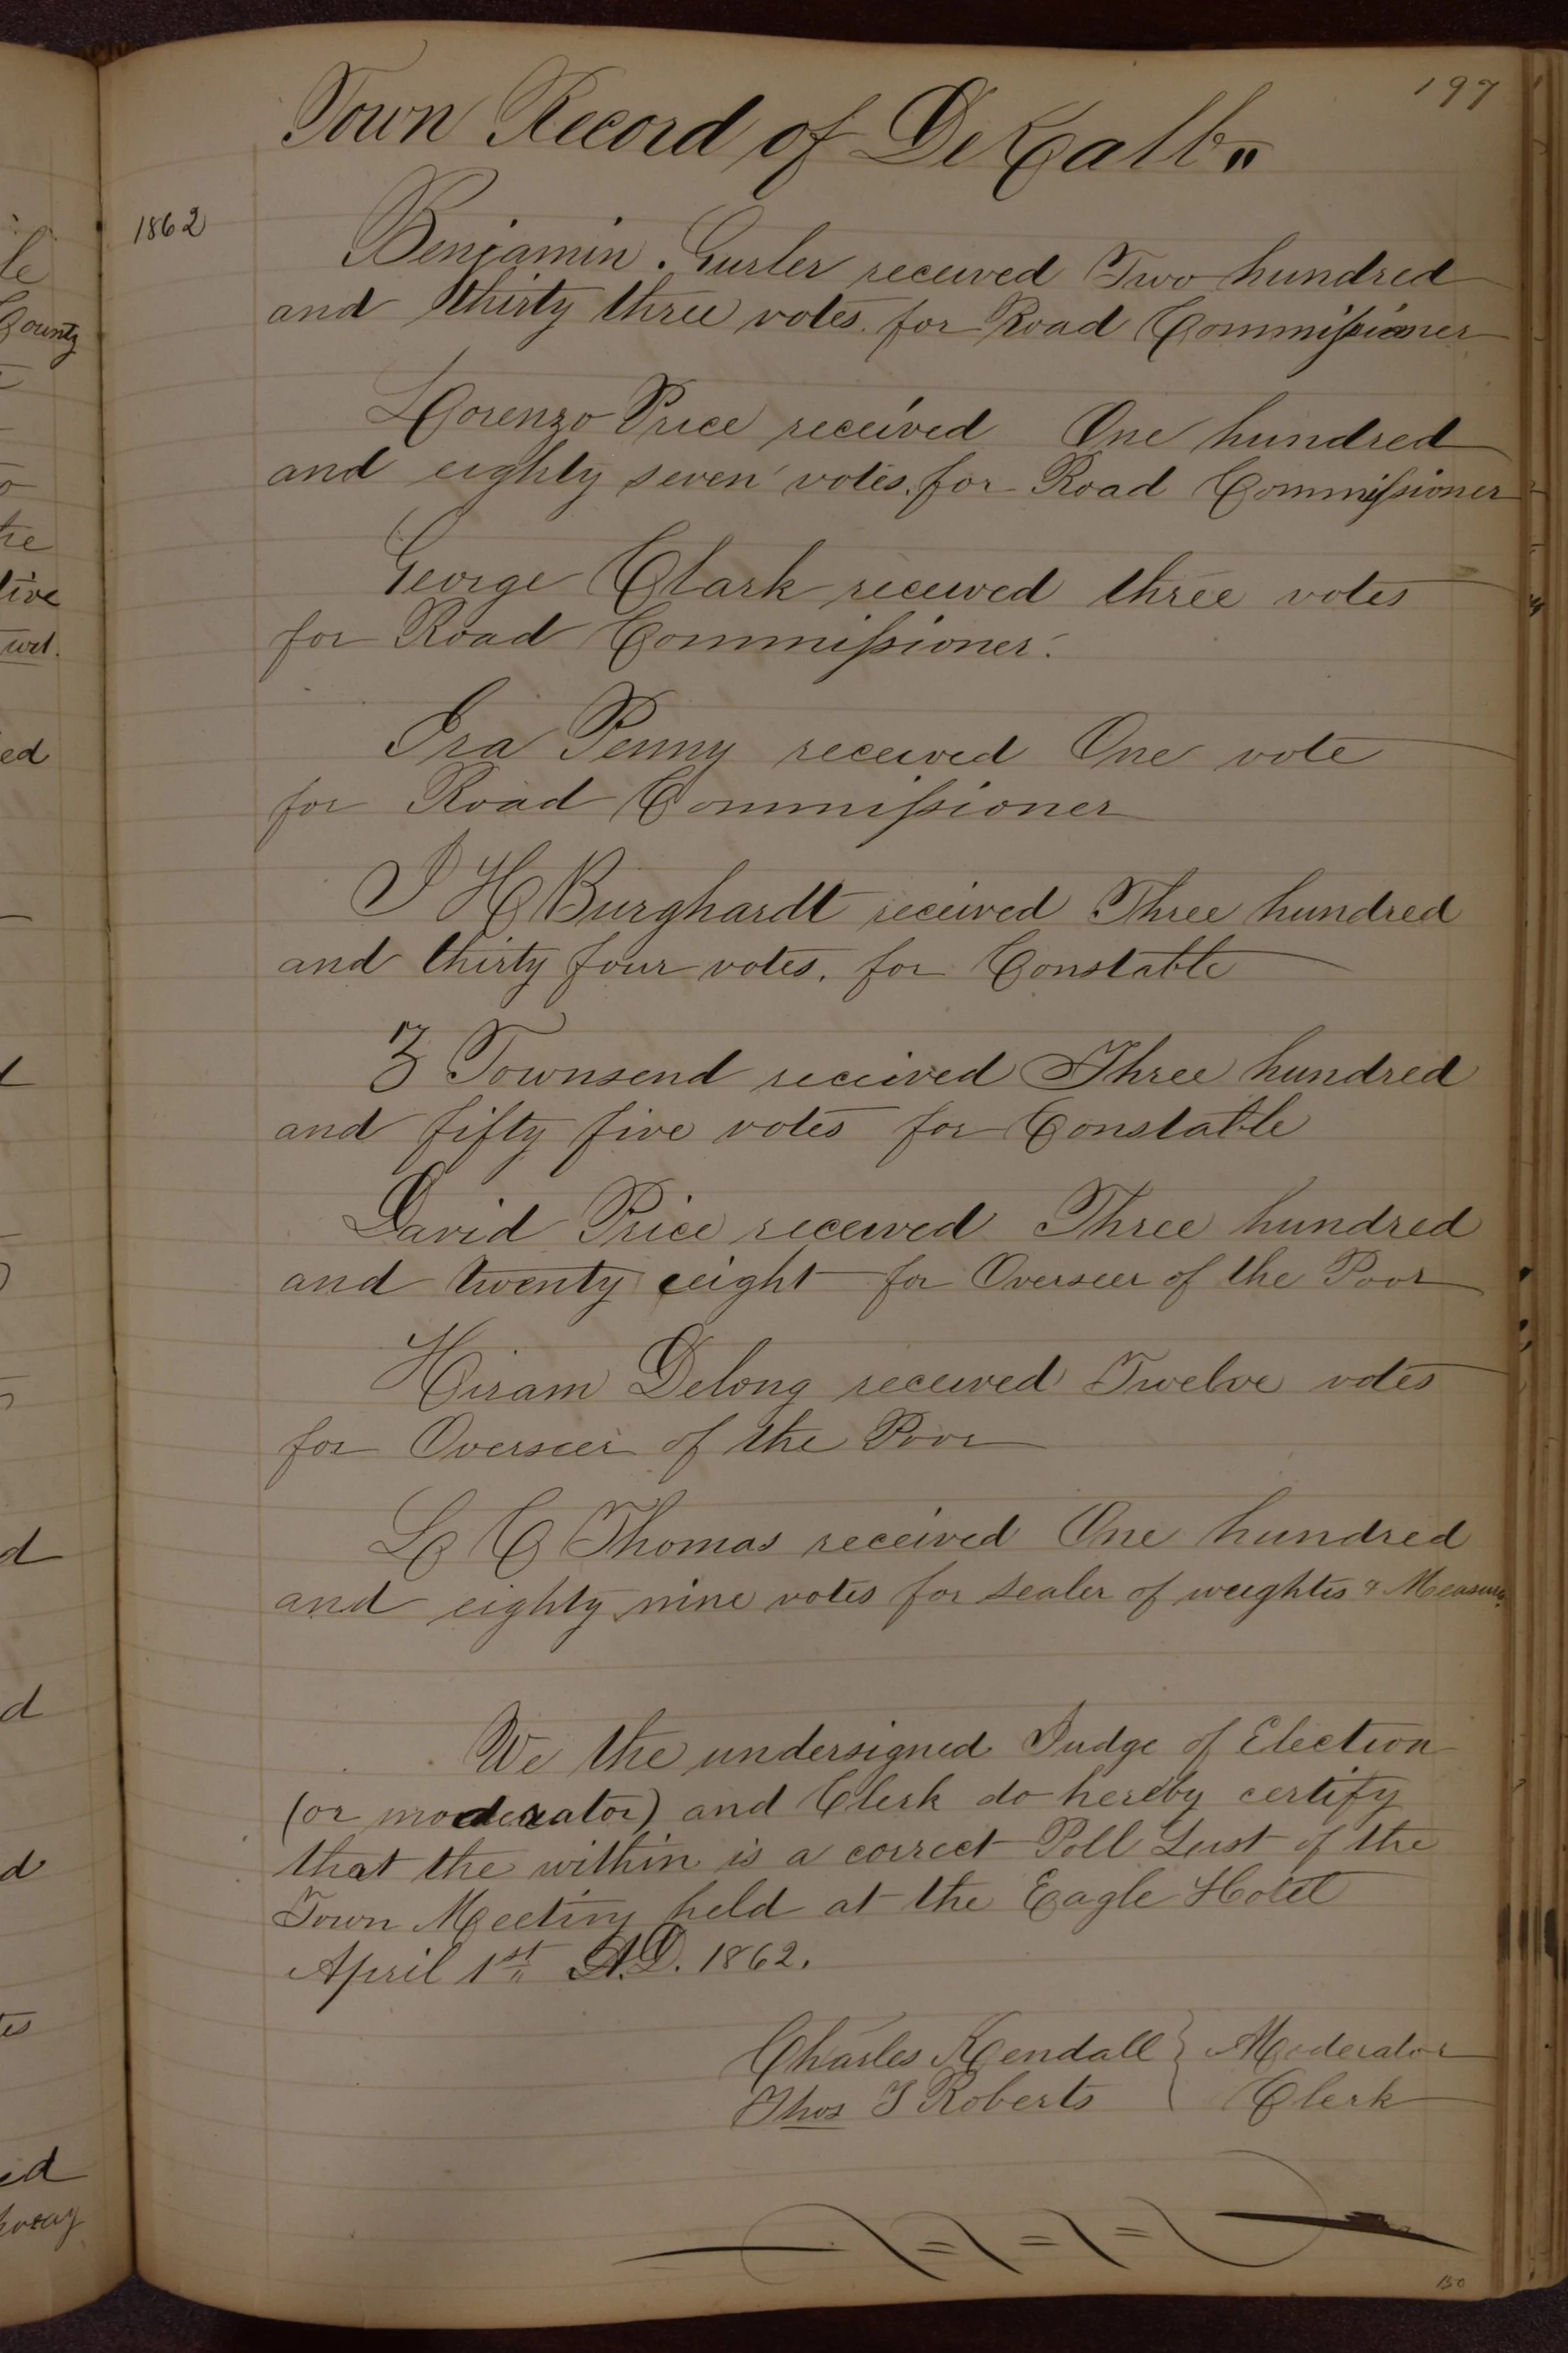 197
Town Record of DeKalb
1862
Benjamin . Gurler received Two hundred
and thirty three votes. for Road Commissioner
Lorenzo Price received One hundred
and eighty seven votes. for Road Commissioner
George Clark received three votes
for Road Commissioner.
Ira Penny received One vote
for Road Commissioner
I H Burghardt received Three hundred
and thirty four votes. for Constable
Z Townsend received Three hundred
and fifty five votes for Constable
David Price received Three hundred
and twenty eight for Overseer of the Poor
Hiram Delong received Twelve votes
for Overseer of the Poor
L C Thomas received One hundred
and eighty nine votes for sealer of weightes & Measures
We the undersigned Judge of Election
(or moderator) and Clerk do hereby certify
that the within is a correct Poll List of the
Town Meeting held at the Eagle Hotel
April 1st A.D. 1862.
Charles Kendall } Moderator
Thos T Roberts } Clerk
150